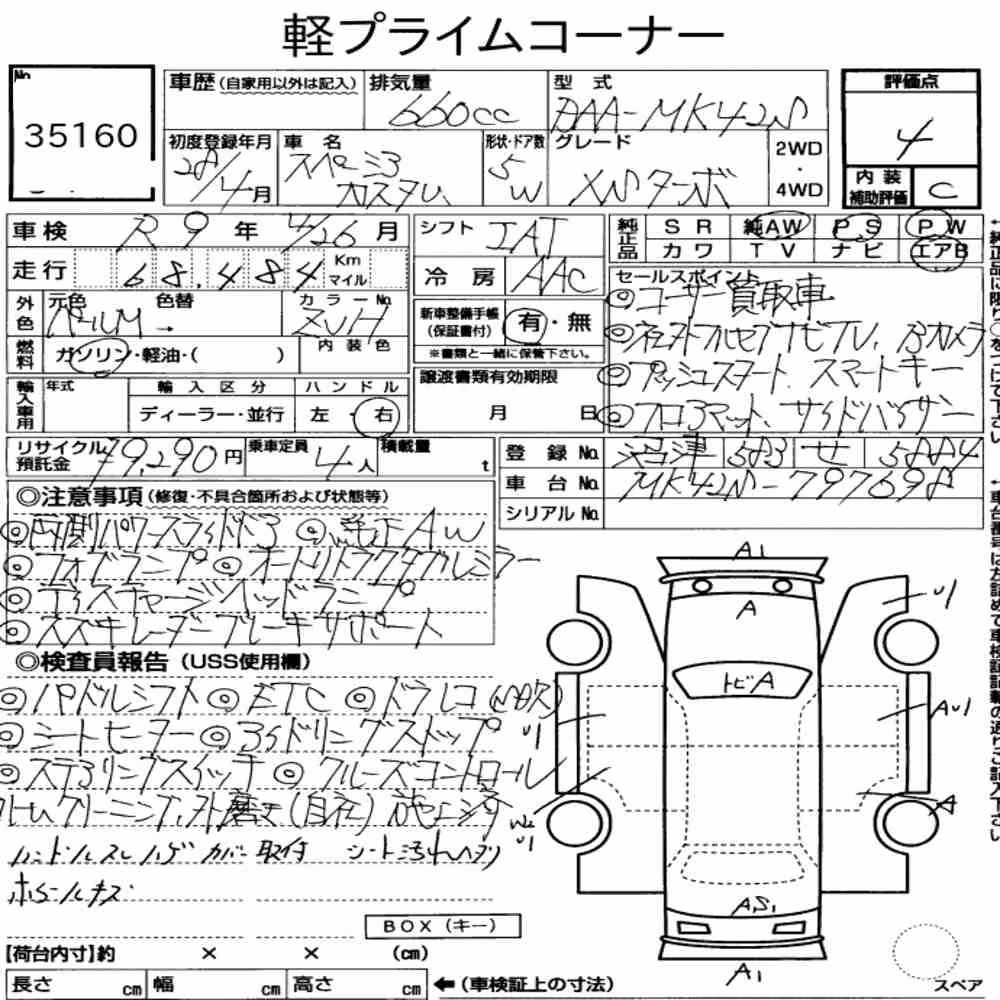 軽プライムコーナー
No
35160
車歴 (自家用以外は記入)
排気量
660cc
型式
DAA-MK42S
評価点
4
初度登録年月
28/4月
車名
スペーシア
カスタム
形状・ドア数
5
W
グレード
XSターボ
2WD
・
4WD
内装
補助評価
C
車検
R 9 年 4/26 月
シフト
IAT
純正品
SR
純AW
PS
PW
カワ
TV
ナビ
エアB
走行
68,484
Km
マイル
冷房
AAC
セールスポイント
◎ユーザー買取車
外色
元色
色替
パールM →
カラーNo.
ZVH
内装色
新車整備手帳
(保証書付)
有・無
※書類と一緒に保管下さい。
◎社外フルセグナビTV、Bカメラ
燃料
ガソリン・軽油・( )
◎プッシュスタート スマートキー
輸入車用
年式
輸入区分
ハンドル
ディーラー・並行
左・右
譲渡書類有効期限
月 日
◎フロアマット サイドバイザー
リサイクル
預託金
¥9,290円
乗車定員
4人
積載量
t
登録No.
沼津 583 せ 5884
車台No.
MK42S-797698
シリアルNo.
◎注意事項 (修復・不具合箇所および状態等)
◎両側パワースライドドア ◎純正AW
◎フォグランプ ◎オートリトラクタブルミラー
◎ディスチャージヘッドランプ
◎スズキレーダーブレーキサポート
◎検査員報告 (USS使用欄)
◎パドルシフト ◎ETC ◎ドラレコ
◎シートヒーター ◎アイドリングストップ
◎ステアリングスイッチ ◎クルーズコントロール
ルームクリーニング、外磨き(自社)施工済
ハンドルスレ ハゲ カバー取付 シート汚れヘタリ
ホイールキズ
A1
A
U1
トビA
AU1
U1
A
U1
AS1
A1
BOX (キー)
【荷台内寸】約 × × (cm)
長さ cm 幅 cm 高さ cm ←(車検証上の寸法)
スペア